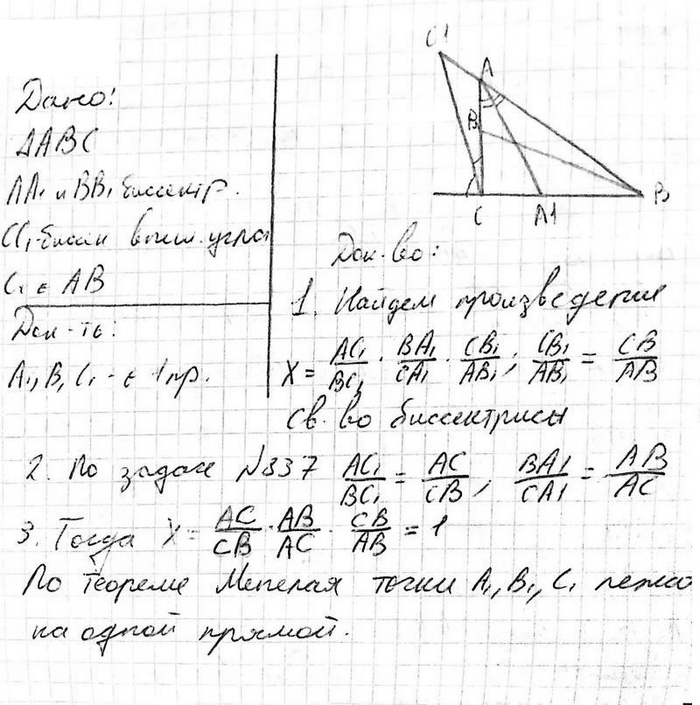 C1
A
B
B
C
A1
Дано:
ΔABC
AA₁ и BB₁ биссектр.
CC₁-биссек внеш. угла
C₁ ∈ AB
Док-ть:
A₁, B, C₁ - ∈ 1 пр.
Док-во:
1. Найдем произведение
X = AC₁/BC₁ · BA₁/CA₁ · CB₁/AB₁; CB₁/AB₁ = CB/AB
св-во биссектрисы
2. По задаче №837 AC₁/BC₁ = AC/CB, BA1/CA1 = AB/AC
3. Тогда X = AC/CB · AB/AC · CB/AB = 1
По теореме Менелая точки A₁, B₁, C₁ лежа
на одной прямой.